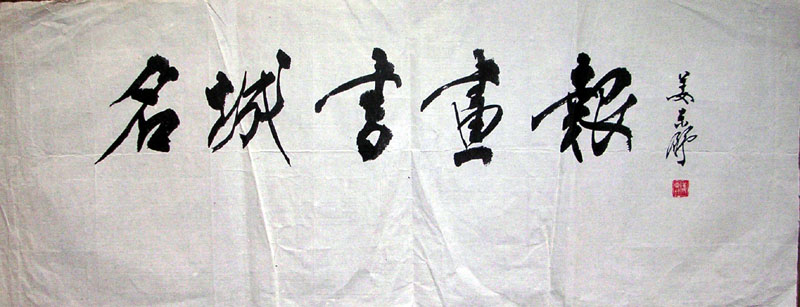 名城書畫報
姜东舒